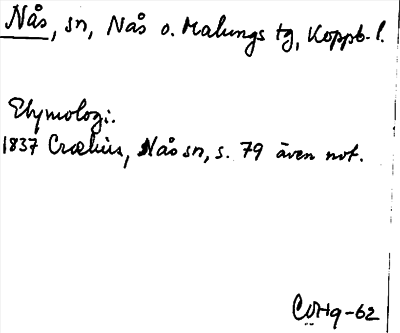 Nås, sn, Nås o. Malungs tg, Koppb. l.
Etymologi.
1837 Crælius, Nås sn, s. 79 även not.
COHq-62